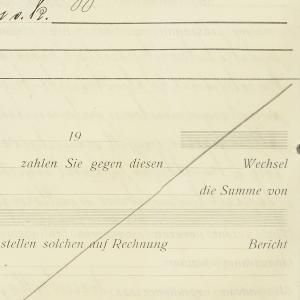 19
zahlen Sie gegen diesen Wechsel
die Summe von
stellen solchen auf Rechnung Bericht